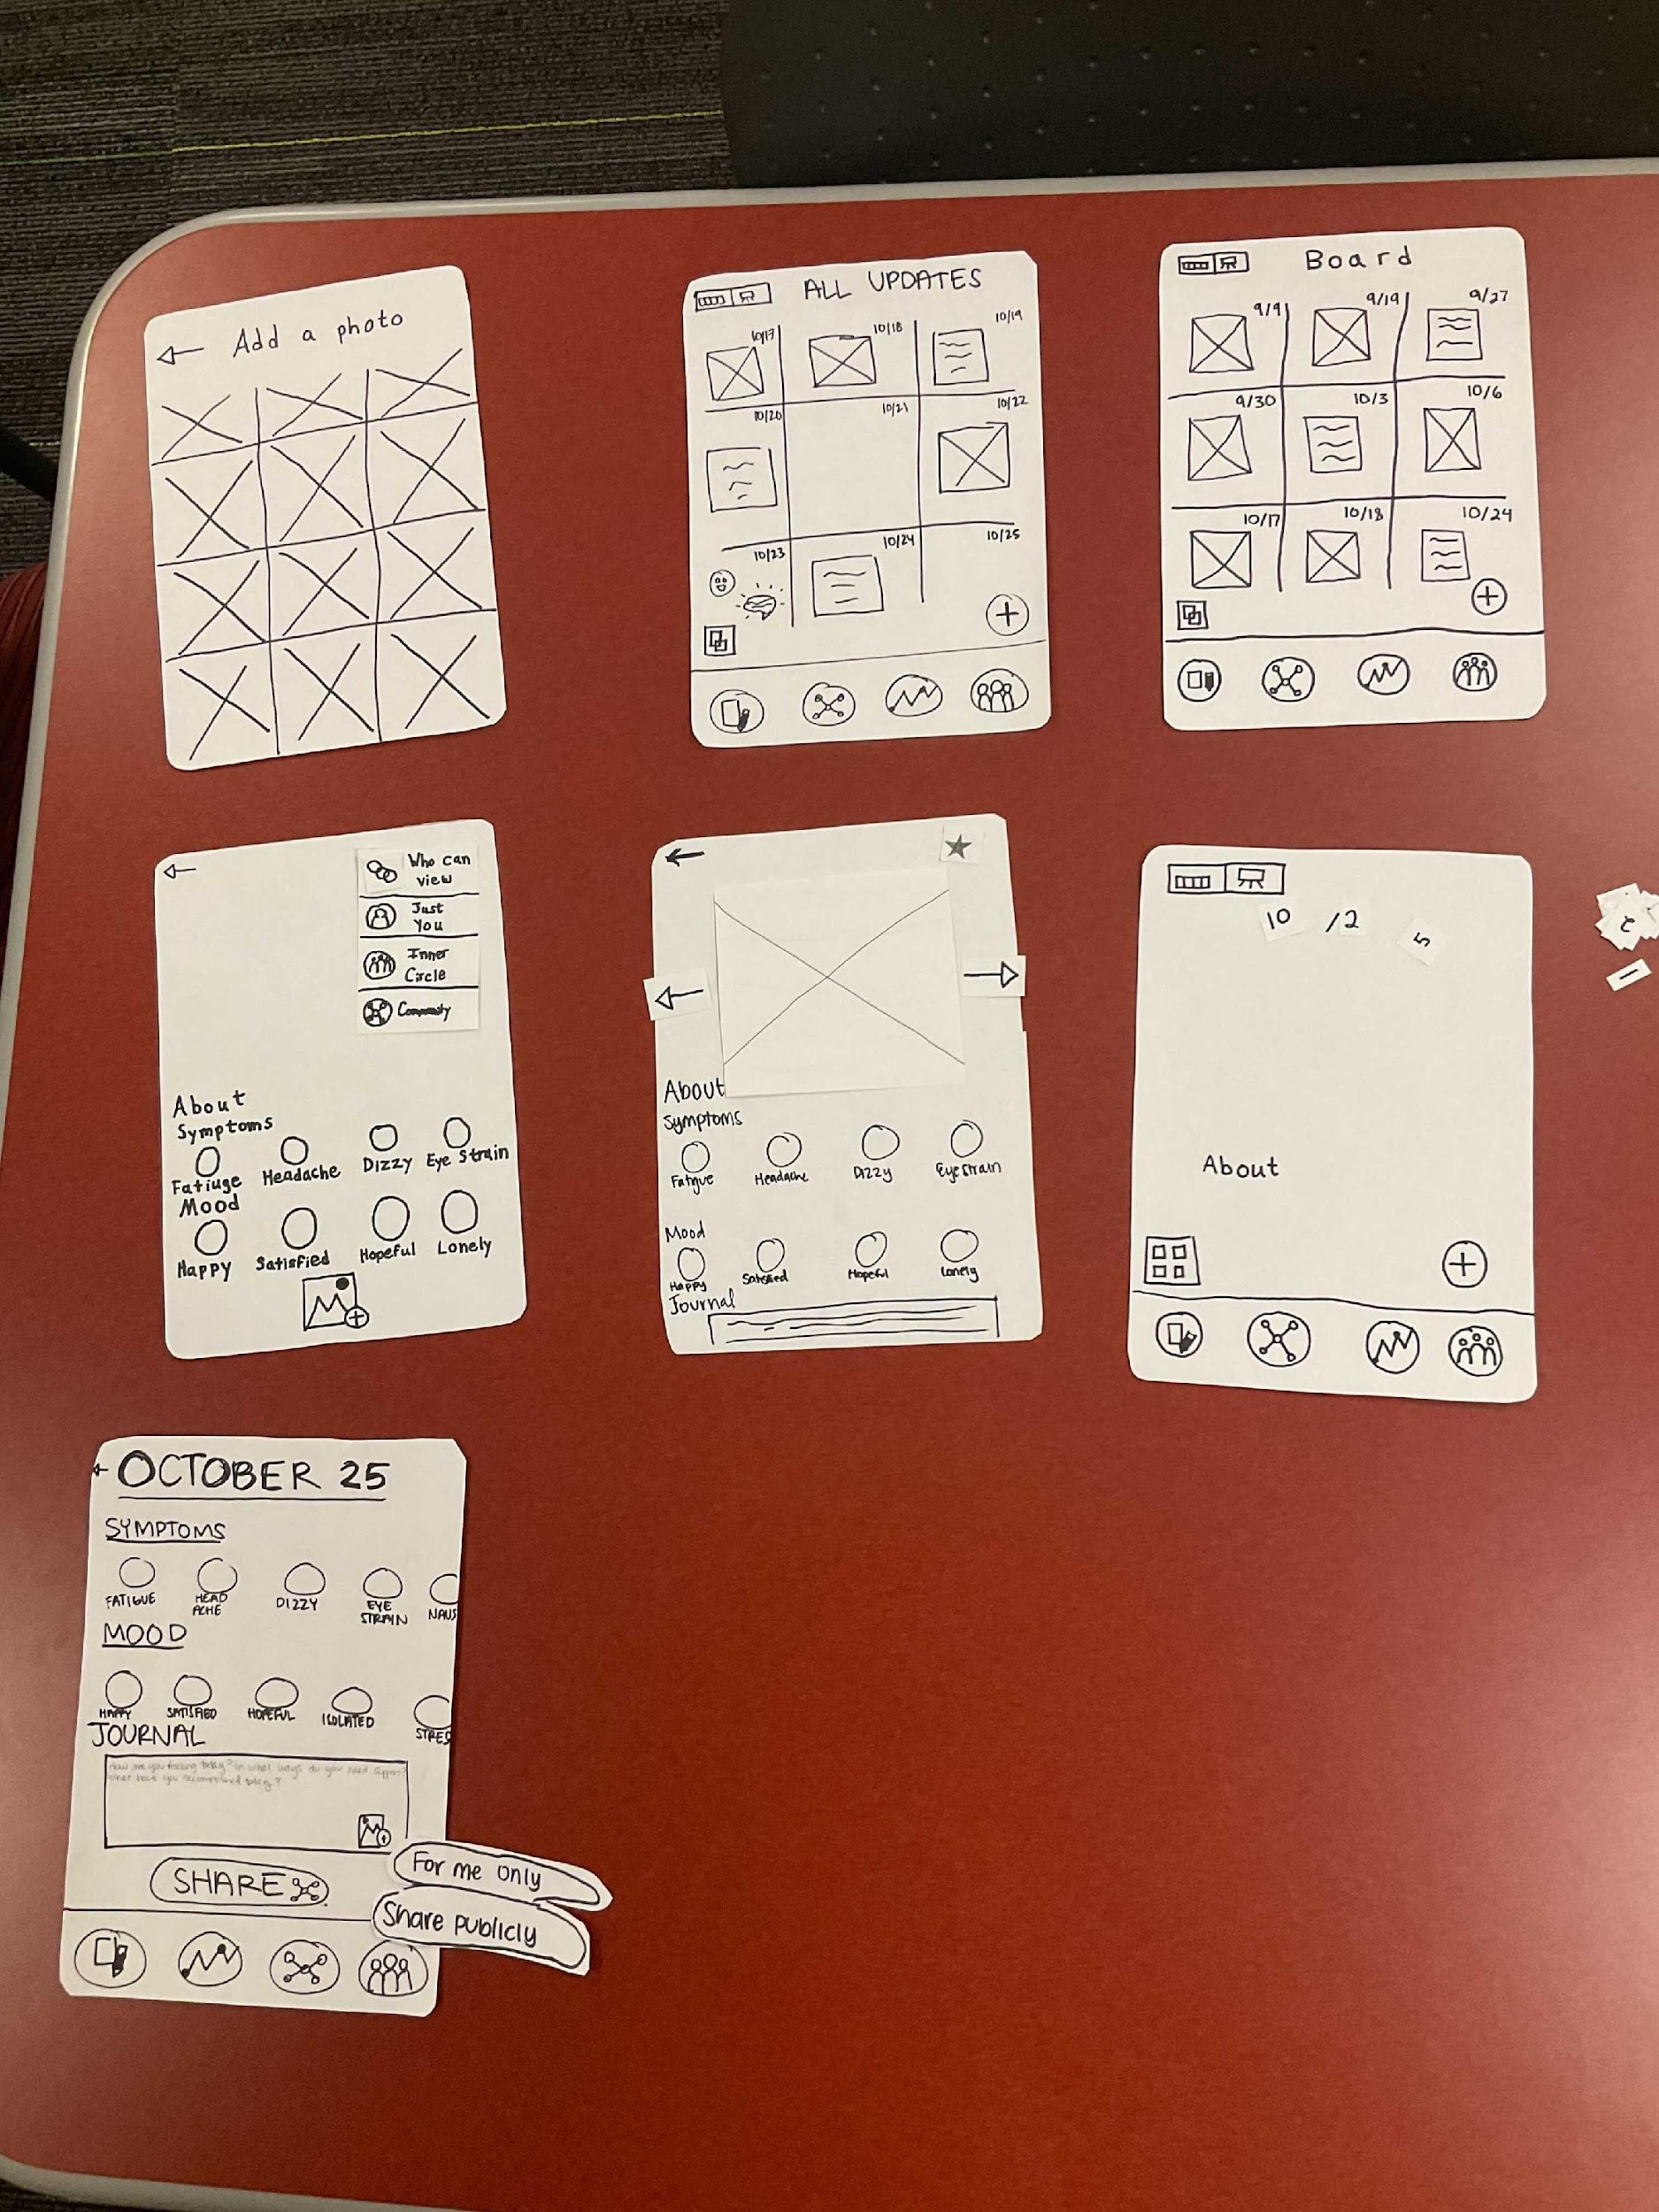 Add a photo
ALL UPDATES
10/17
10/18
10/19
10/20
10/21
10/22
10/23
10/24
10/25
Board
9/9
9/19
9/27
9/30
10/3
10/6
10/17
10/18
10/24
Who can
view
Just
You
Inner
Circle
Community
About
Symptoms
Fatiuge
Headache
Dizzy
Eye Strain
Mood
Happy
Satisfied
Hopeful
Lonely
About
Symptoms
Fatigue
Headache
Dizzy
Eye strain
Mood
Happy
Satisfied
Hopeful
Lonely
Journal
10 /2 5
About
OCTOBER 25
SYMPTOMS
FATIGUE
HEAD
ACHE
DIZZY
EYE
STRAIN
NAUS
MOOD
HAPPY
SATISFIED
HOPEFUL
ISOLATED
STRES
JOURNAL
How are you feeling today? In what ways do you need support?
What have you accomplished today?
SHARE
For me only
Share publicly